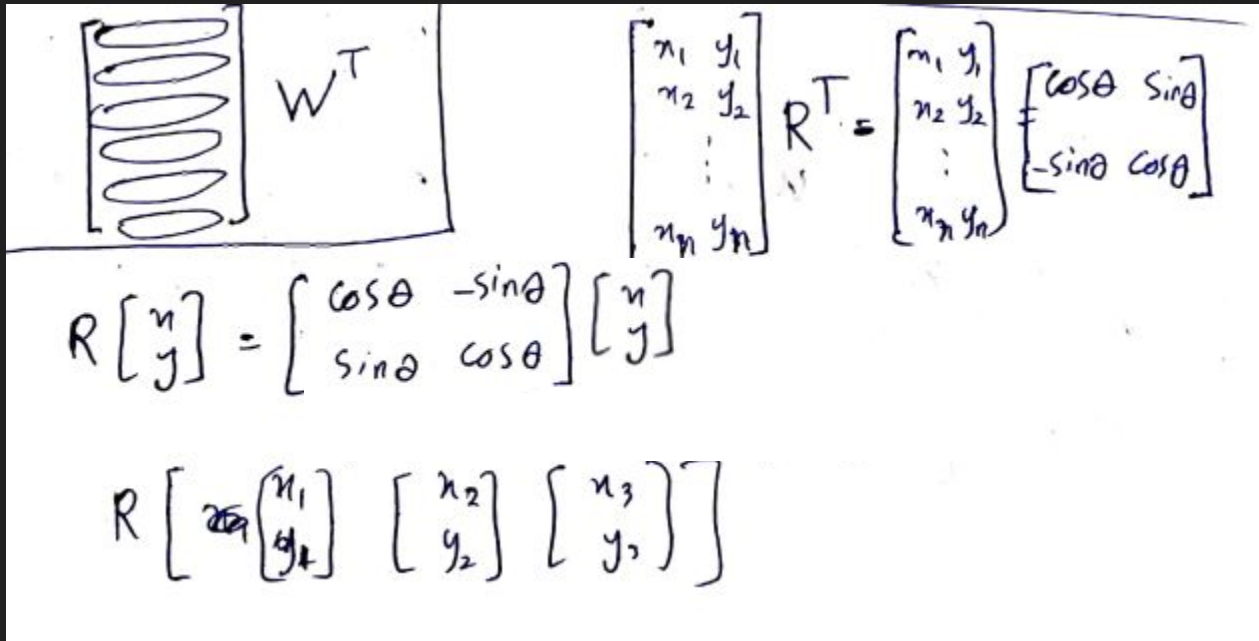 W^T
[x₁ y₁ x₂ y₂ ⋮ xₙ yₙ] R^T = [x₁ y₁ x₂ y₂ ⋮ xₙ yₙ] [cosθ sinθ -sinθ cosθ]
R [x y] = [cosθ -sinθ sinθ cosθ] [x y]
R [ [x₁ y₁] [x₂ y₂] [x₃ y₃] ]